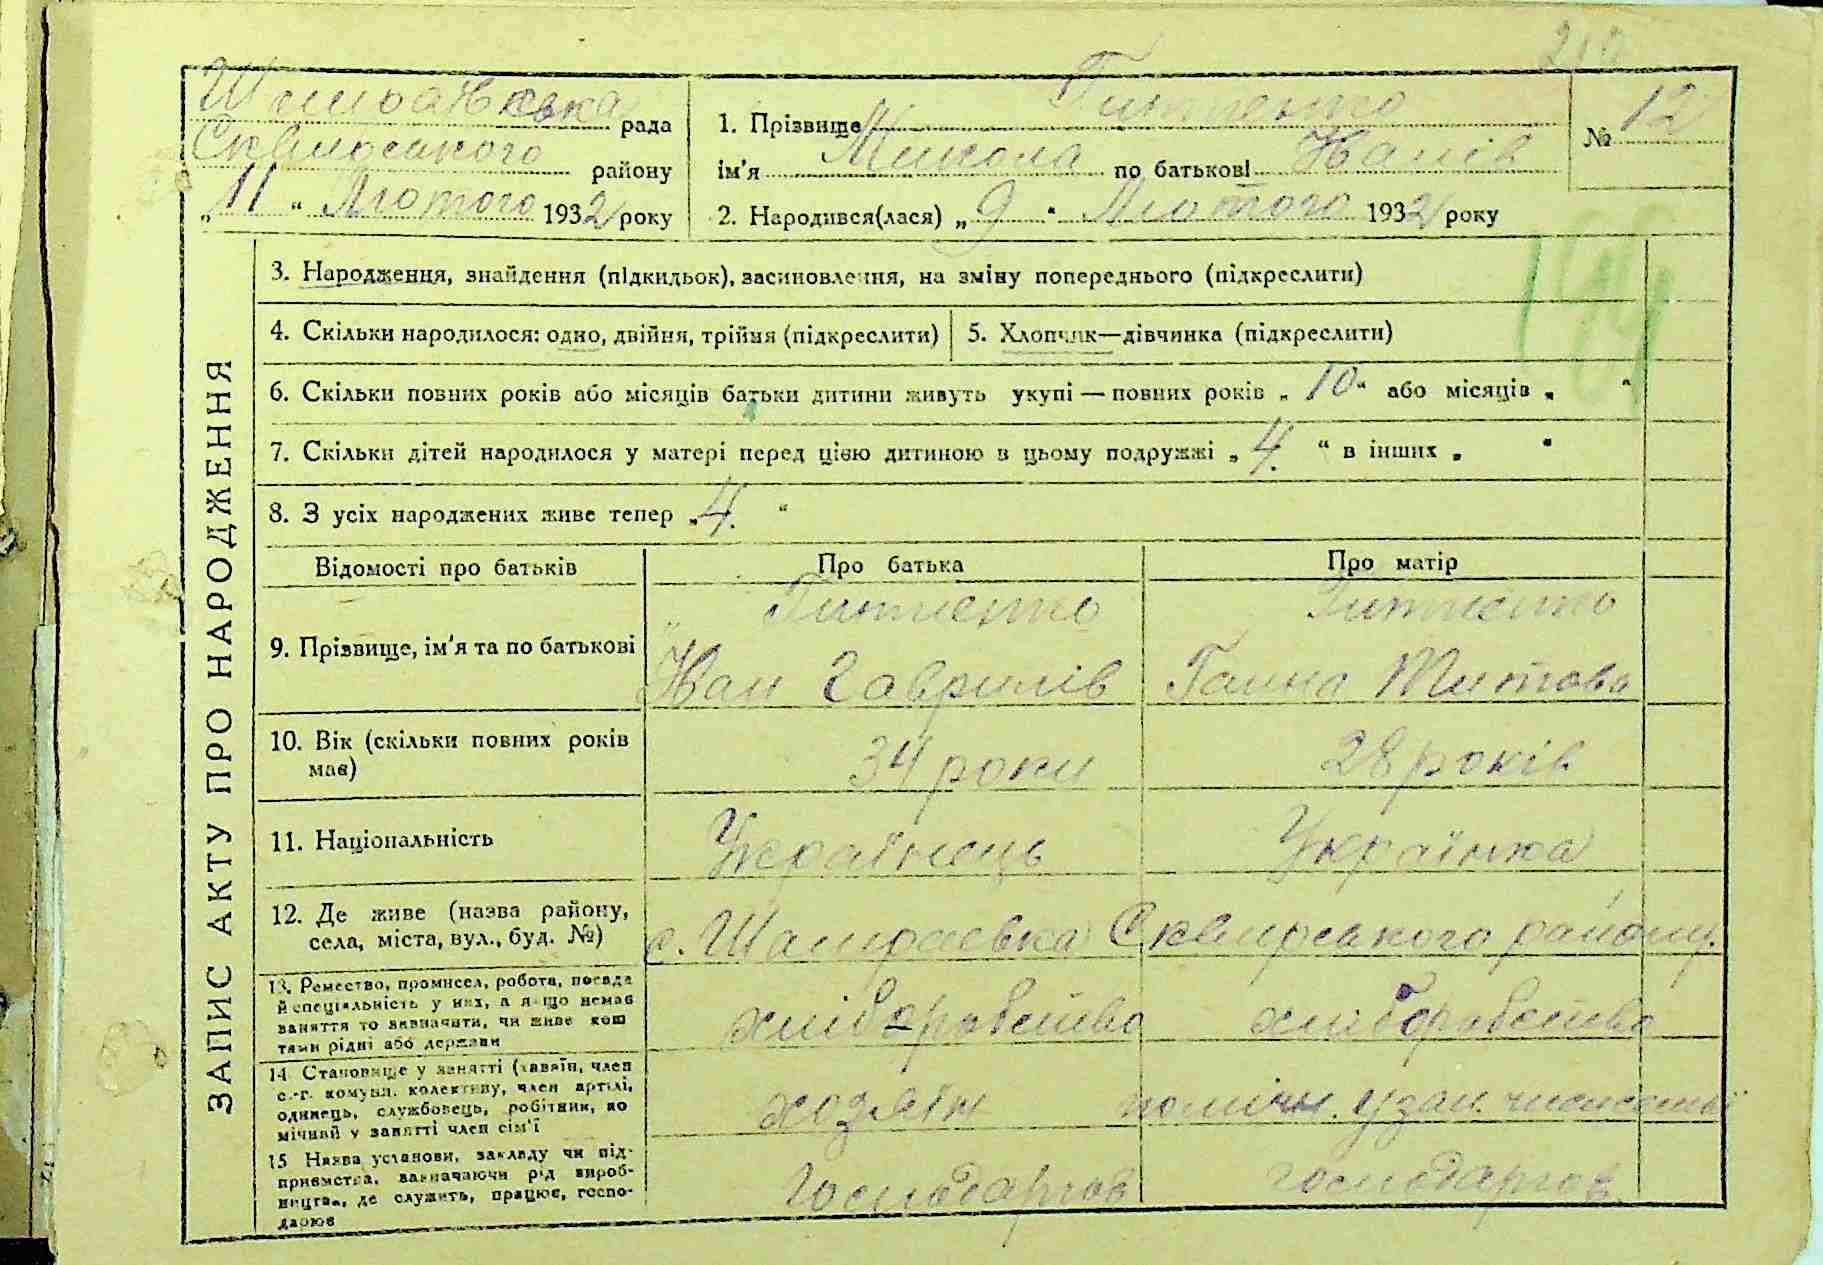 210
Шамраївська рада
Сквирського району
„11“ Лютого 1932 року
1. Прізвище
ім'я Микола по батькові Іванів
№ 12
2. Народився(лася) „9“ Лютого 1932 року
ЗАПИС АКТУ ПРО НАРОДЖЕННЯ
3. Народження, знайдення (підкидьок), засиновлення, на зміну попереднього (підкреслити)
4. Скільки народилося: одно, двійня, трійня (підкреслити)
5. Хлопчик—дівчинка (підкреслити)
6. Скільки повних років або місяців батьки дитини живуть укупі — повних років „10“ або місяців „ “
7. Скільки дітей народилося у матері перед цією дитиною в цьому подружжі „4.“ в інших „ “
8. З усіх народжених живе тепер „4.“
Відомості про батьків
Про батька
Про матір
9. Прізвище, ім'я та по батькові
Іван Гаврилів
Ганна Титова
10. Вік (скільки повних років
має)
34 роки
28 років
11. Національність
Українець
Українка
12. Де живе (назва району,
села, міста, вул., буд. №)
с. Шамраевка Сквирського району.
13. Ремество, промисел, робота, посада
й спеціяльність у них, а якщо немає
заняття то зазначити, чи живе кош
тами рідні або держави
хліборобство
хліборобство
14 Становище у занятті (хазяїн, член
с.-г. комуни, колективу, член артілі,
одинець, службовець, робітник, по
мічний у занятті член сім'ї
хозяїн
поміч. у зан. член сем'ї
15 Назва установи, закладу чи під-
приємства, зазначаючи рід вироб-
ництва, де служить, працює, госпо-
дарює
господарков
господарков